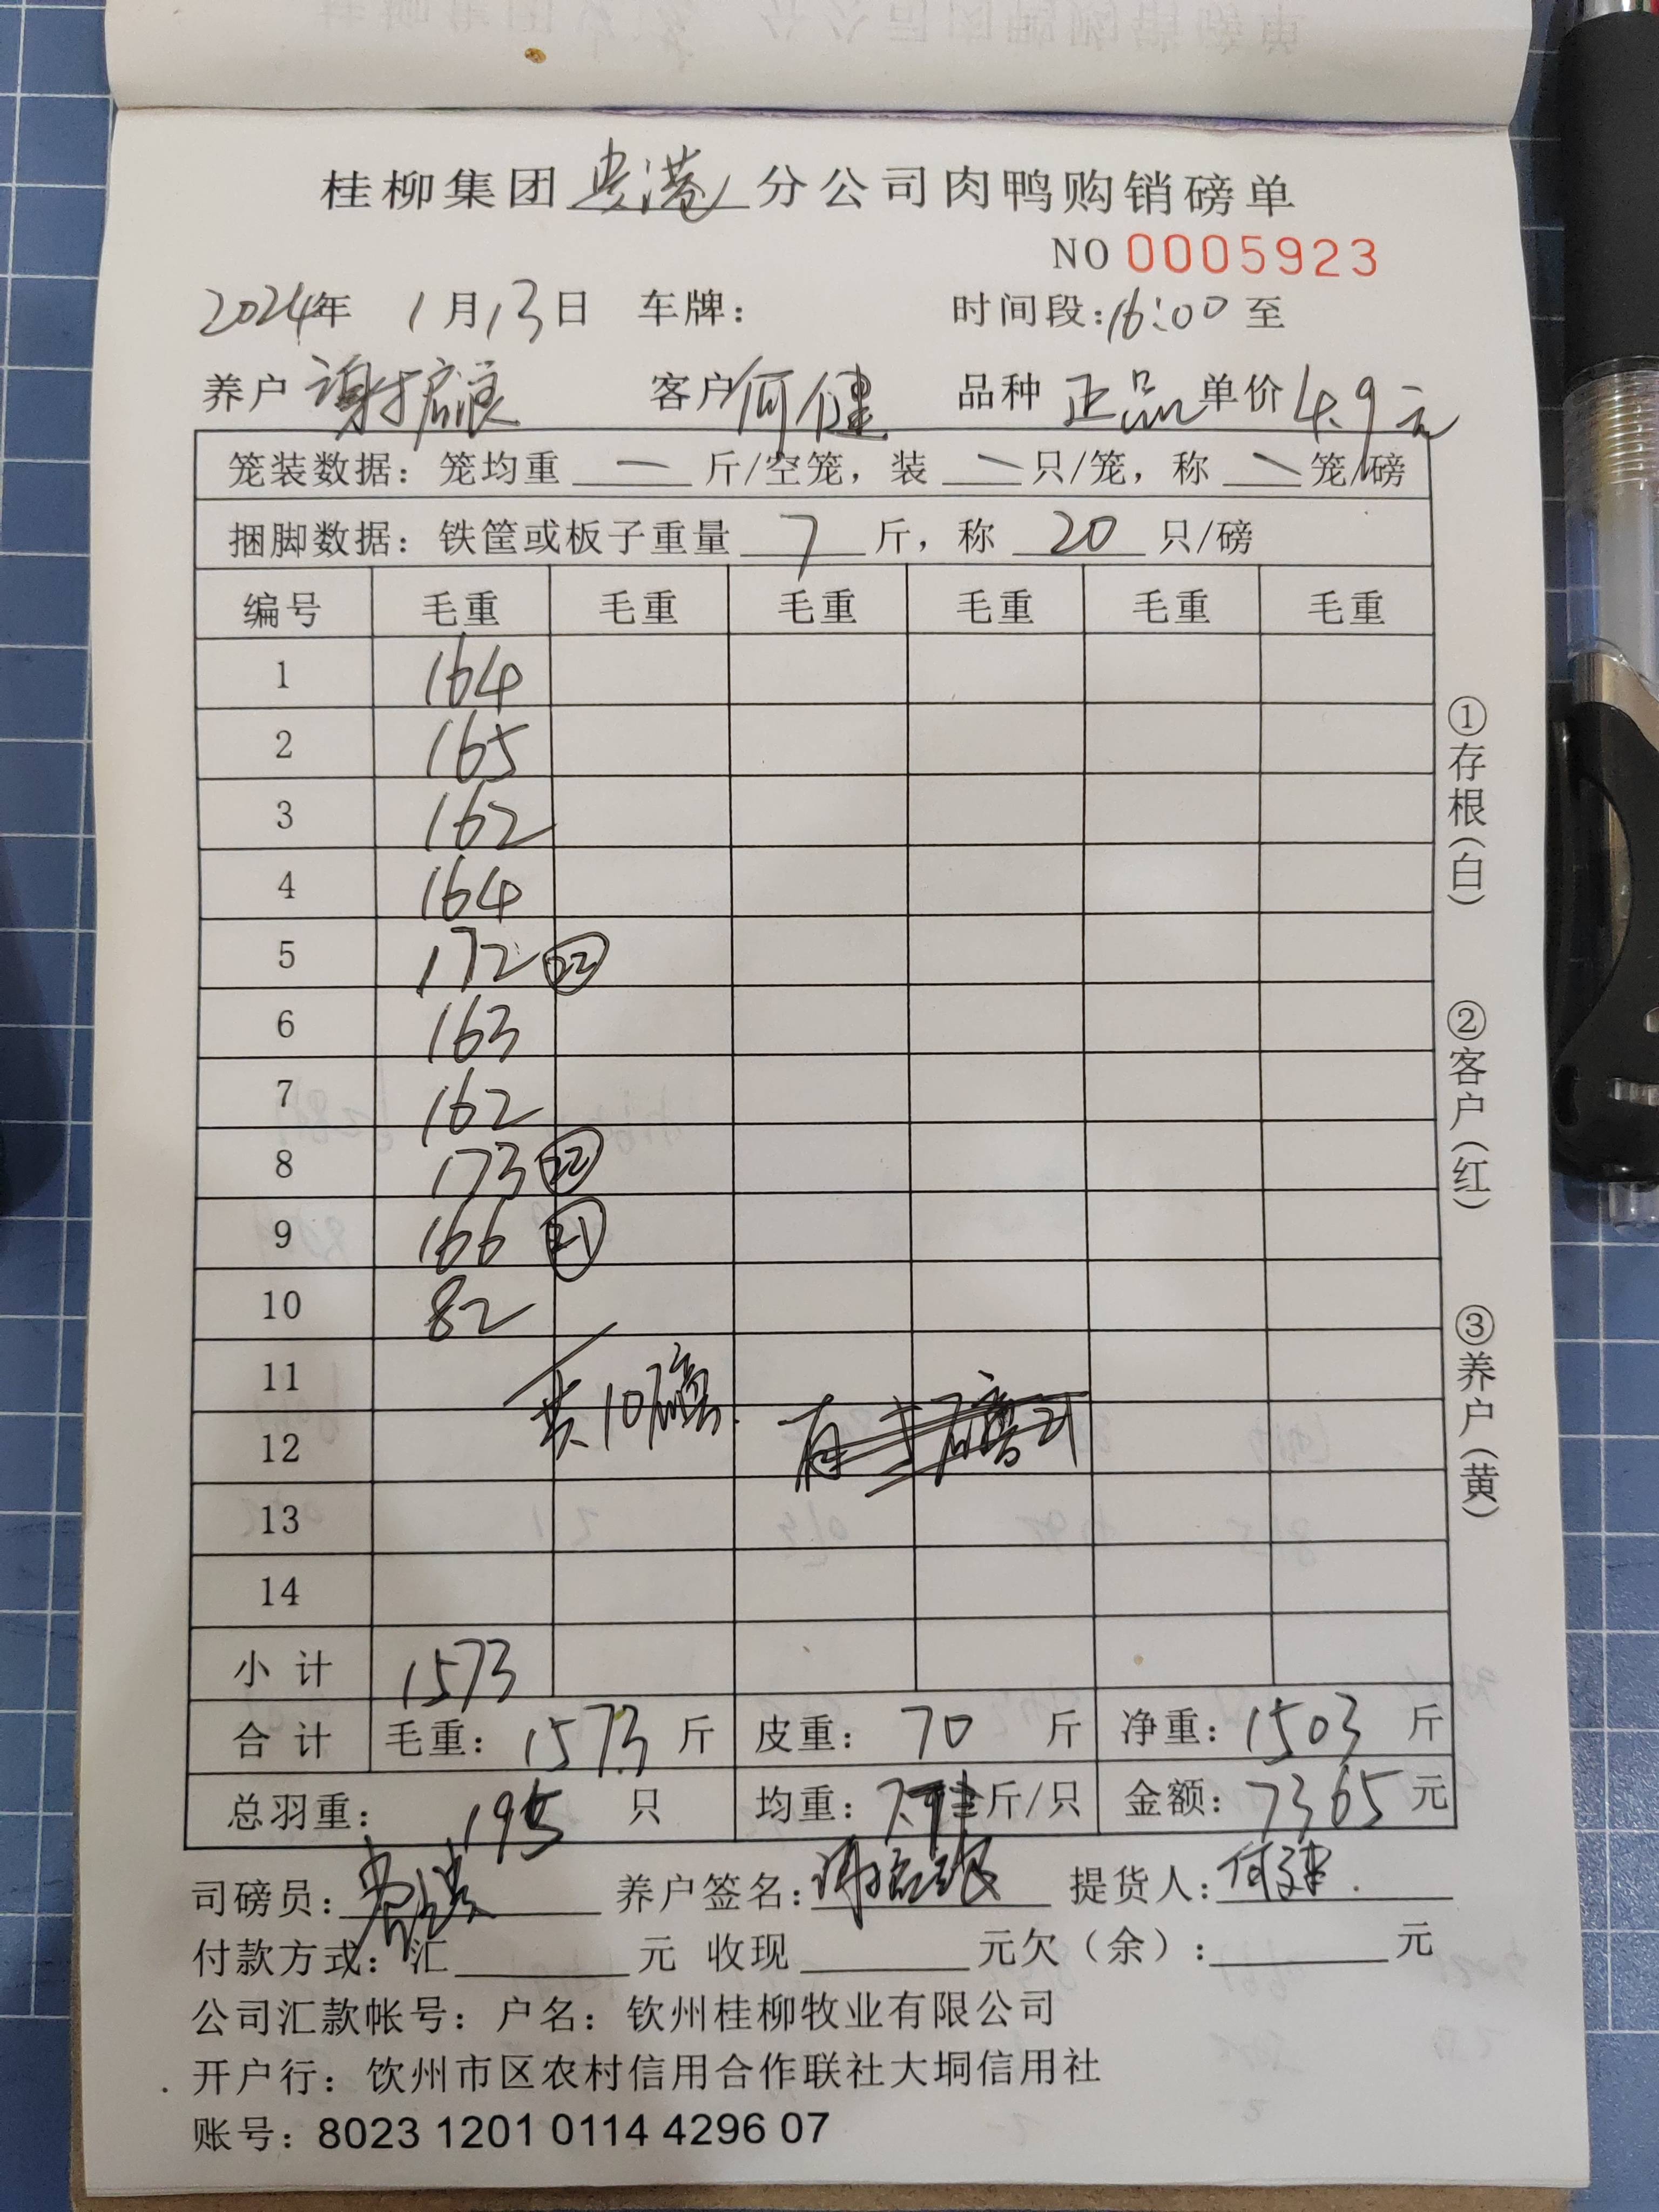 桂柳集团贵港分公司肉鸭购销磅单
NO 0005923
2024年 1月13日 车牌： 时间段：16:00 至
养户 谢 客户 何健 品种 正品 单价 4.9元
笼装数据：笼均重 — 斤/空笼，装 — 只/笼，称 — 笼/磅
捆脚数据：铁筐或板子重量 7 斤，称 20 只/磅
编号 毛重 毛重 毛重 毛重 毛重 毛重
1 164
2 165
3 162
4 164
5 172 22
6 163
7 162
8 173 22
9 166 21
10 82
11
共10磅
12
13
14
小计 1573
合计 毛重：1573 斤 皮重：70 斤 净重：1503 斤
总羽重：195 只 均重： 斤/只 金额：7365元
司磅员： 养户签名： 提货人：何健
付款方式：汇 元 收现 元欠（余）： 元
公司汇款帐号：户名：钦州桂柳牧业有限公司
开户行：钦州市区农村信用合作联社大垌信用社
账号：8023 1201 0114 4296 07
①存根（白）
②客户（红）
③养户（黄）